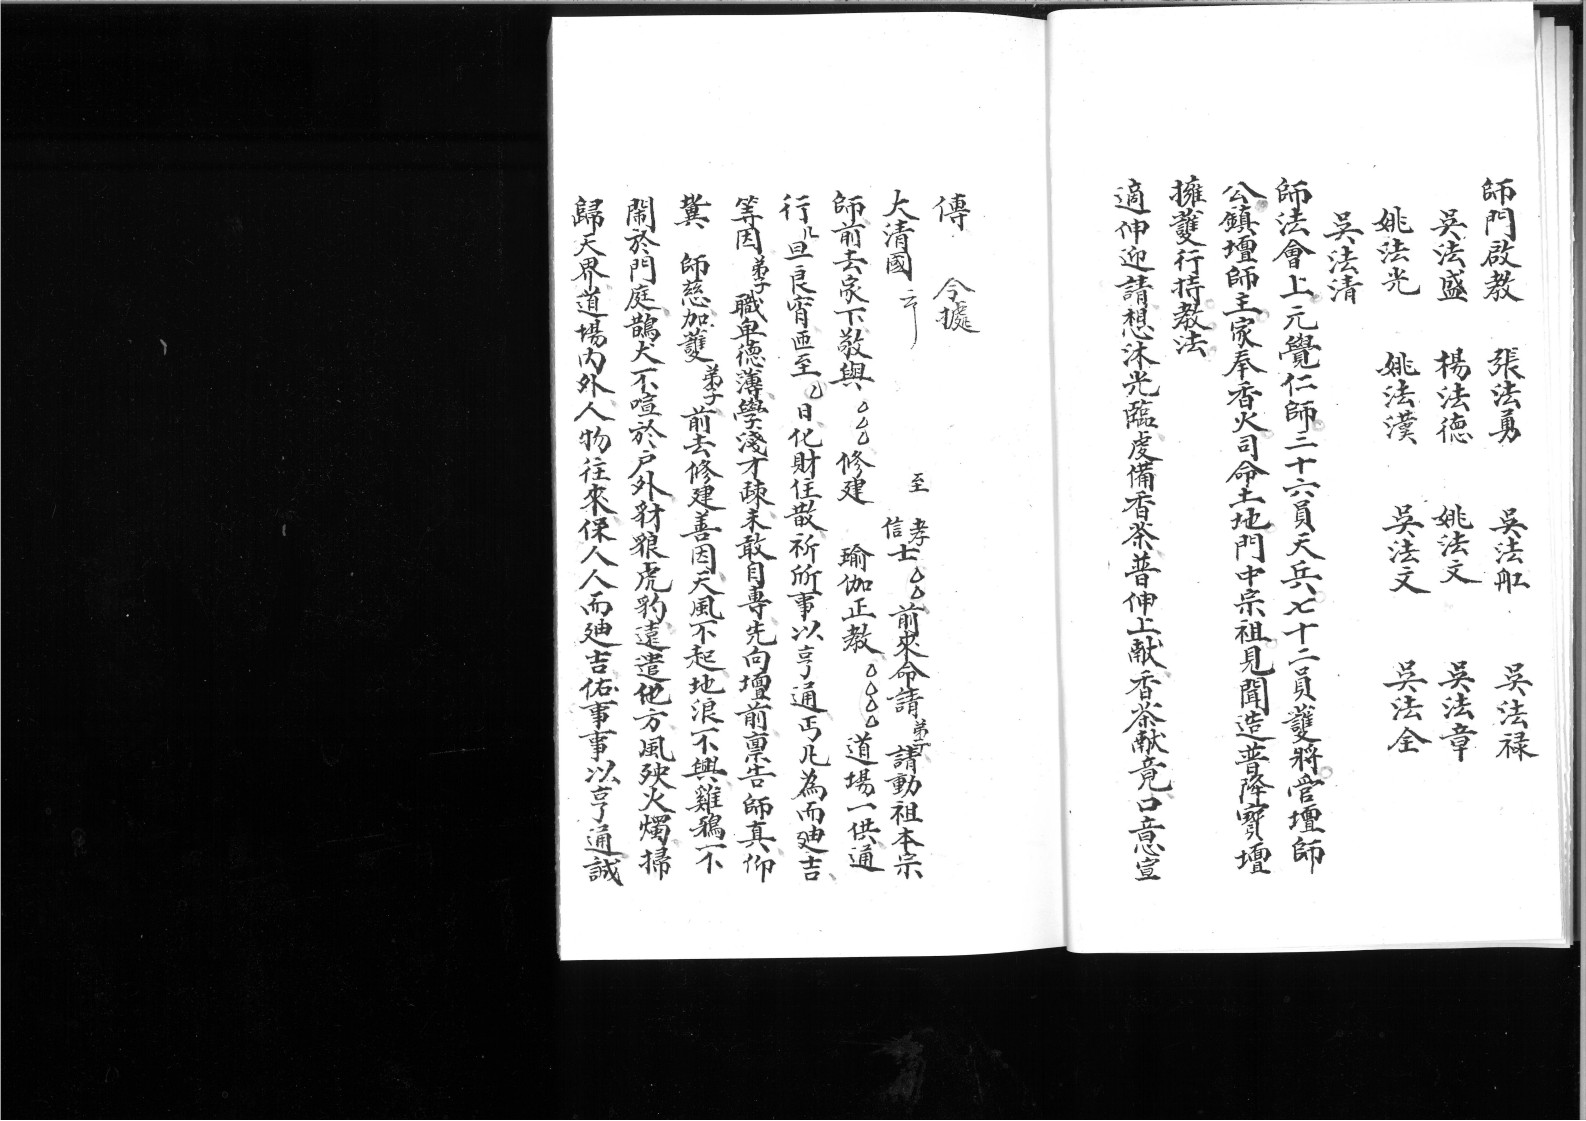 師門啟教　張法勇　吳法舡　吳法禄
吳法盛　楊法德　姚法文　吳法章
姚法光　姚法漢　吳法文　吳法全
吳法清
師法會上元覺仁師三十六員天兵七十二員護將官壇師
公鎮壇師主家奉香火司命土地門中宗祖見聞造普降寶壇
擁護行持教法
適伸迎請想沐光臨虔備香茶普伸上献香茶献竟口意宣
傳　今據
大清國　至　孝信士〇〇前來命請弟子請動祖本宗
師前去家下敬與〇〇〇修建　瑜伽正教〇〇〇〇道場一供通
行几旦良宵匝至〇日化財住散祈所事以亨通丐凡為而廸吉
等因弟子職卑德薄學淺才疎未敢自專先向壇前禀告師真仰
冀　師慈加護弟子前去修建善因天風不起地浪不興雞鴉不
鬧於門庭鵲犬不喧於户外豺狼虎豹遠遣他方風殃火燭掃
歸天界道場内外人物往來保人人而廸吉佑事事以亨通誠